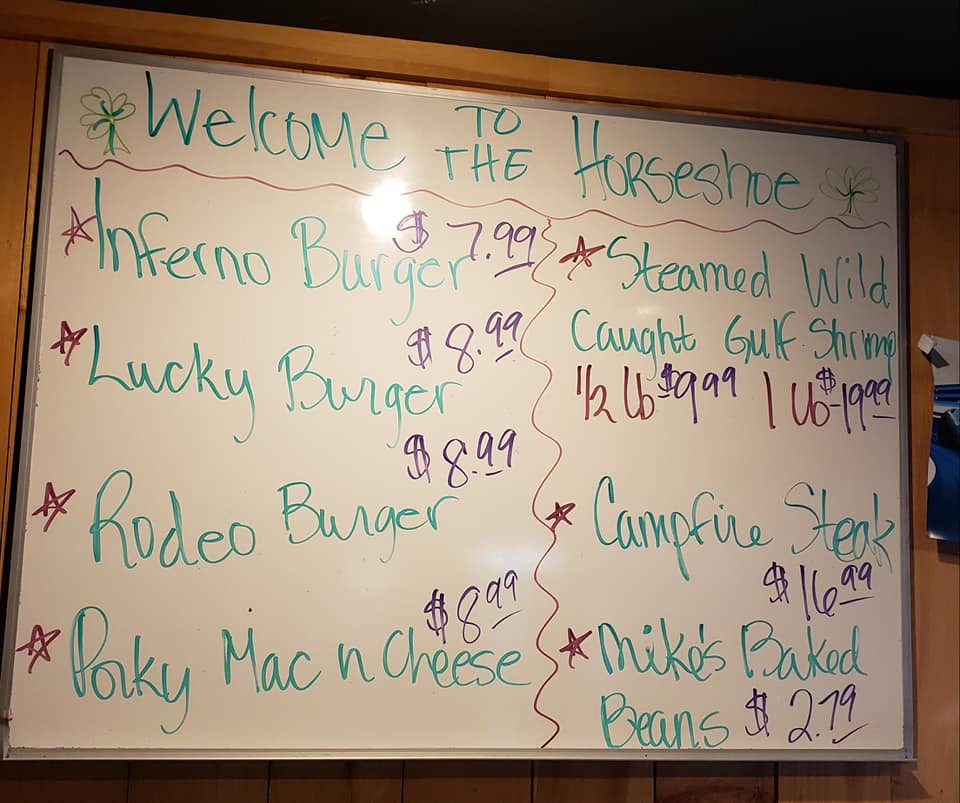 Welcome TO THE Horseshoe
Inferno Burger $7.99
Lucky Burger $8.99
Rodeo Burger $8.99
Porky Mac n Cheese $8.99
Steamed Wild
Caught Gulf Shrimp
1/2 lb $9.99 1 lb $19.99
Campfire Steak
$16.99
Mike's Baked
Beans $2.79